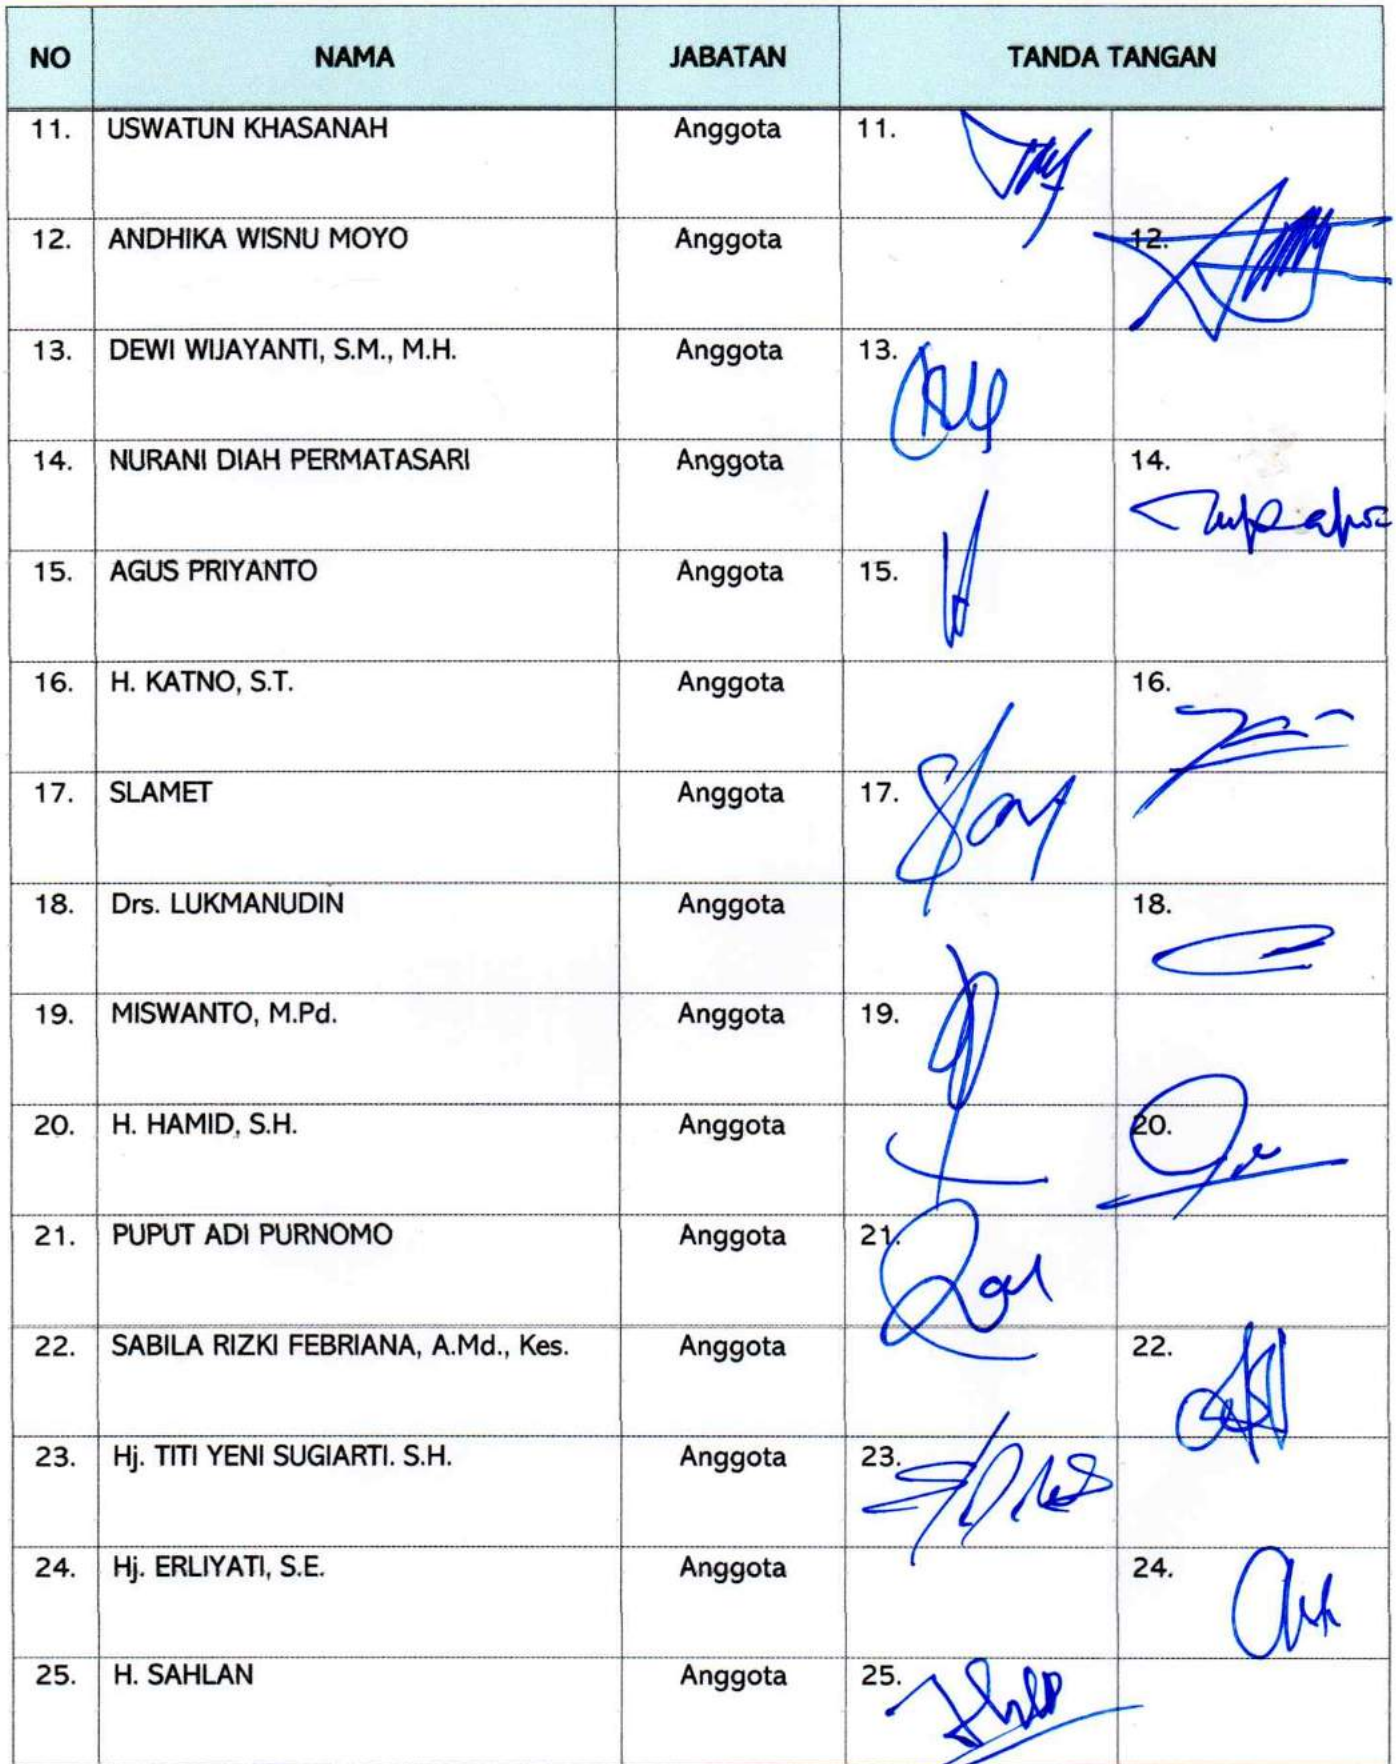 NO NAMA JABATAN TANDA TANGAN
11. USWATUN KHASANAH Anggota 11.
12. ANDHIKA WISNU MOYO Anggota 12.
13. DEWI WIJAYANTI, S.M., M.H. Anggota 13.
14. NURANI DIAH PERMATASARI Anggota 14.
15. AGUS PRIYANTO Anggota 15.
16. H. KATNO, S.T. Anggota 16.
17. SLAMET Anggota 17.
18. Drs. LUKMANUDIN Anggota 18.
19. MISWANTO, M.Pd. Anggota 19.
20. H. HAMID, S.H. Anggota 20.
21. PUPUT ADI PURNOMO Anggota 21.
22. SABILA RIZKI FEBRIANA, A.Md., Kes. Anggota 22.
23. Hj. TITI YENI SUGIARTI. S.H. Anggota 23.
24. Hj. ERLIYATI, S.E. Anggota 24.
25. H. SAHLAN Anggota 25.